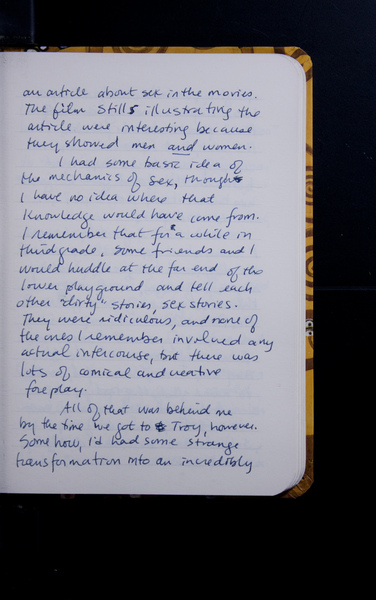 an article about sex in the movies.
The film stills illustrating the
article were interesting because
they showed men and women.
I had some basic idea of
the mechanics of sex, though
I have no idea where that
knowledge would have come from.
I remember that for a while in
third grade, some friends and I
would huddle at the far end of the
lower playground and tell each
other "dirty" stories, sex stories.
They were ridiculous, and none of
the ones I remember involved any
actual intercourse, but there was
lots of comical and creative
foreplay.
All of that was behind me
by the time we got to Troy, however.
Somehow, I'd had some strange
transformation into an incredibly